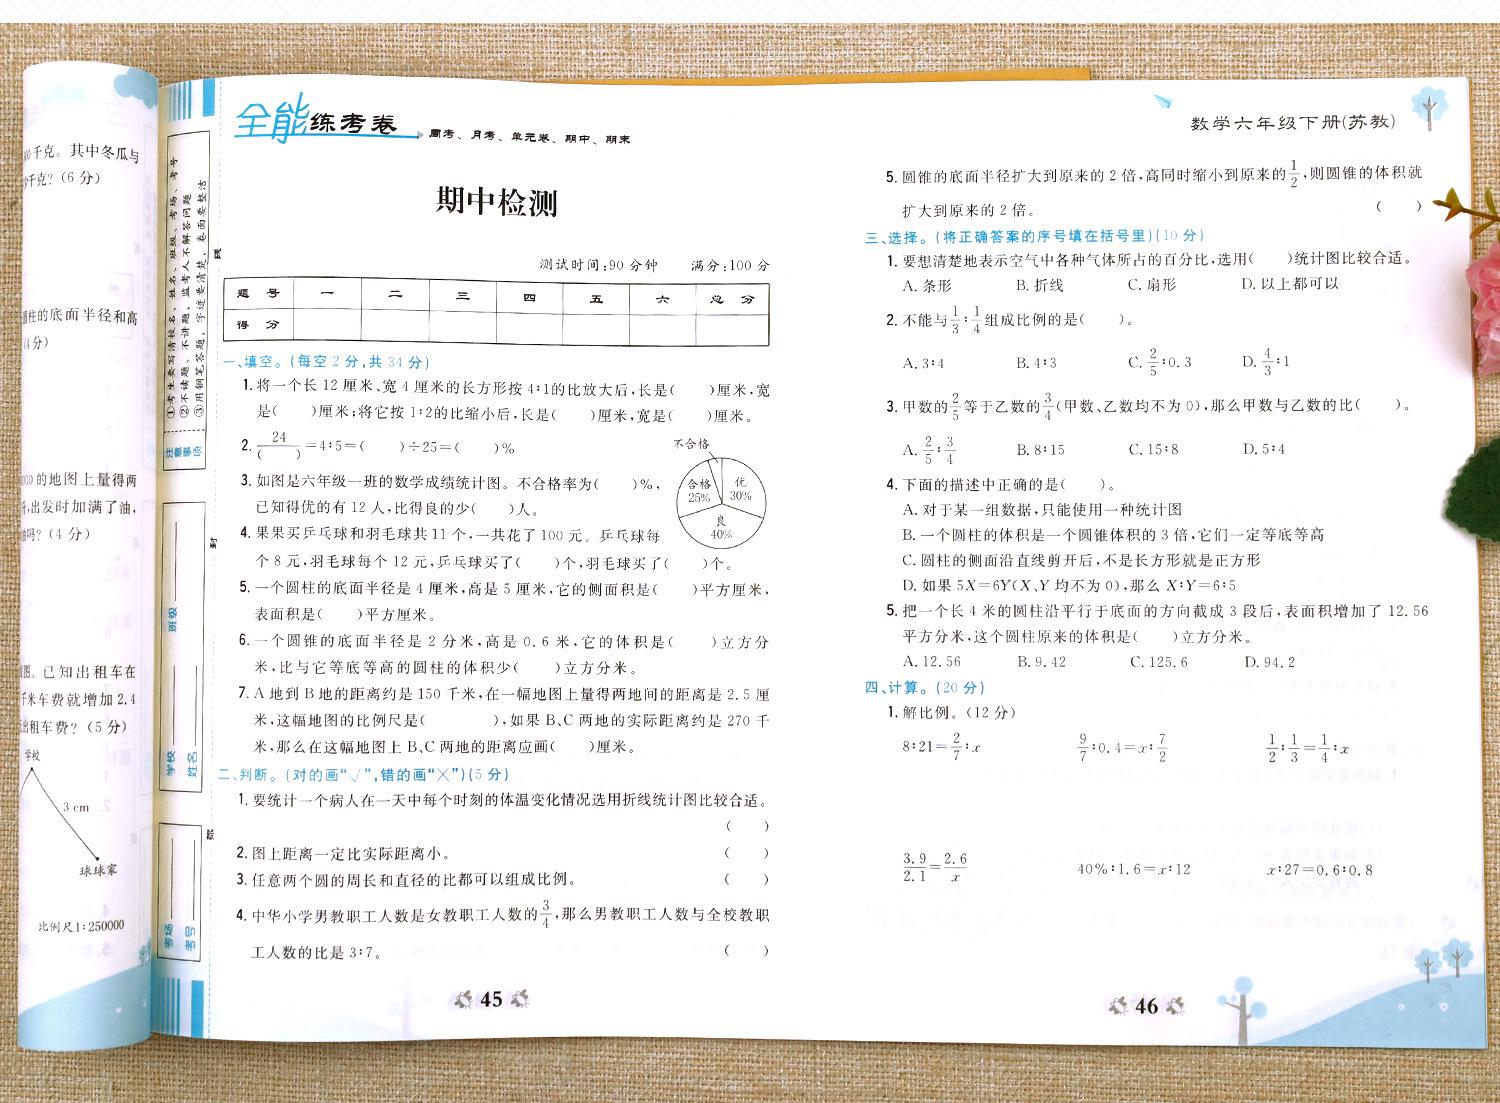 千克。其中冬瓜与
千克?(6分)
圆柱的底面半径和高
(4分)
的地图上量得两
,出发时加满了油,
吗?(4分)
图。已知出租车在
千米车费就增加2.4
出租车费?(5分)
学校
3 cm
球球家
比例尺1:250000
①考生要写清校名、姓名、班级、考场、考号
②不读题、不讲题,监考人不解答问题
③用钢笔答题,字迹要清楚,卷面要整洁
注意事项
班级
学校
姓名
考场
考号
线
封
密
全能练考卷
周考、月考、单元卷、期中、期末
期中检测
测试时间:90分钟 满分:100分
题号 一 二 三 四 五 六 总分
得分
一、填空。(每空2分,共34分)
1. 将一个长12厘米、宽4厘米的长方形按4∶1的比放大后,长是( )厘米,宽
是( )厘米;将它按1∶2的比缩小后,长是( )厘米,宽是( )厘米。
2. 24/( )=4∶5=( )÷25=( )%
3. 如图是六年级一班的数学成绩统计图。不合格率为( )%,
已知得优的有12人,比得良的少( )人。
不合格
合格 25%
优 30%
良 40%
4. 果果买乒乓球和羽毛球共11个,一共花了100元。乒乓球每
个8元,羽毛球每个12元,乒乓球买了( )个,羽毛球买了( )个。
5. 一个圆柱的底面半径是4厘米,高是5厘米,它的侧面积是( )平方厘米,
表面积是( )平方厘米。
6. 一个圆锥的底面半径是2分米,高是0.6米,它的体积是( )立方分
米,比与它等底等高的圆柱的体积少( )立方分米。
7. A地到B地的距离约是150千米,在一幅地图上量得两地间的距离是2.5厘
米,这幅地图的比例尺是( ),如果B、C两地的实际距离约是270千
米,那么在这幅地图上B、C两地的距离应画( )厘米。
二、判断。(对的画“√”,错的画“×”)(5分)
1. 要统计一个病人在一天中每个时刻的体温变化情况选用折线统计图比较合适。
( )
2. 图上距离一定比实际距离小。 ( )
3. 任意两个圆的周长和直径的比都可以组成比例。 ( )
4. 中华小学男教职工人数是女教职工人数的3/4,那么男教职工人数与全校教职
工人数的比是3∶7。 ( )
45
数学六年级下册(苏教)
5. 圆锥的底面半径扩大到原来的2倍,高同时缩小到原来的1/2,则圆锥的体积就
扩大到原来的2倍。 ( )
三、选择。(将正确答案的序号填在括号里)(10分)
1. 要想清楚地表示空气中各种气体所占的百分比,选用( )统计图比较合适。
A. 条形 B. 折线 C. 扇形 D. 以上都可以
2. 不能与1/3∶1/4组成比例的是( )。
A. 3∶4 B. 4∶3 C. 2/5∶0.3 D. 4/3∶1
3. 甲数的2/5等于乙数的3/4(甲数、乙数均不为0),那么甲数与乙数的比( )。
A. 2/5∶3/4 B. 8∶15 C. 15∶8 D. 5∶4
4. 下面的描述中正确的是( )。
A. 对于某一组数据,只能使用一种统计图
B. 一个圆柱的体积是一个圆锥体积的3倍,它们一定等底等高
C. 圆柱的侧面沿直线剪开后,不是长方形就是正方形
D. 如果5X=6Y(X、Y均不为0),那么X∶Y=6∶5
5. 把一个长4米的圆柱沿平行于底面的方向截成3段后,表面积增加了12.56
平方分米,这个圆柱原来的体积是( )立方分米。
A. 12.56 B. 9.42 C. 125.6 D. 94.2
四、计算。(20分)
1. 解比例。(12分)
8∶21=2/7∶x 9/7∶0.4=x∶7/2 1/2∶1/3=1/4∶x
3.9/2.1=2.6/x 40%∶1.6=x∶12 x∶27=0.6∶0.8
46